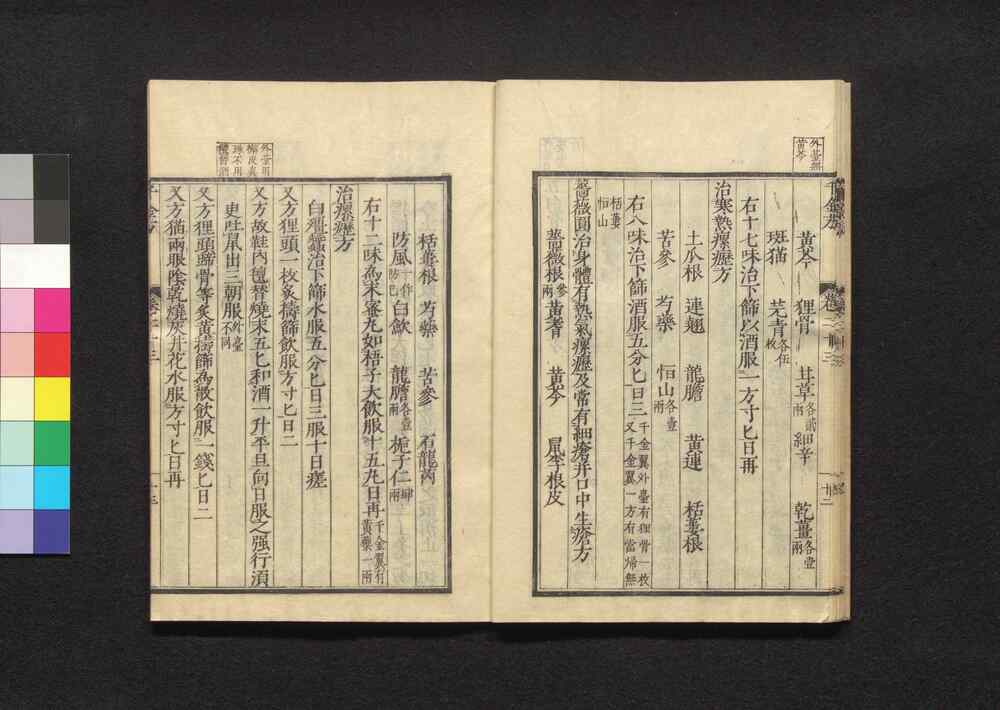 外臺無
黃芩
黃芩 狸骨 甘草各貳兩 細辛 乾薑各壹兩
斑猫 芫青各伍枚
右十七味治下篩以酒服一方寸匕日再
治寒熱瘰癧方
土瓜根 連翹 龍膽 黃連 栝蔞根
苦參 芍藥 恒山各壹兩
右八味治下篩酒服五分匕日三千金翼外臺有狸骨一枚又千金翼一方有當歸無
栝蔞
恒山
薔薇圓治身體有熱氣瘰癧及常有細瘡并口中生瘡方
薔薇根參兩 黃耆 黃芩 鼠李根皮
栝蔞根 芍藥 苦參 石龍芮
防風一作防己 白歛 龍膽各壹兩 梔子仁肆兩
右十二味為末蜜丸如梧子大飲服十五丸日再千金翼有黃藥一兩
治瘰癧方
白殭蠶治下篩水服五分匕日三服十日瘥
又方狸頭一枚炙擣篩飲服方寸匕日二
又方故鞋內氊替燒末五匕和酒一升平旦向日服之强行湏
吏吐鼠出三朝服外臺不同
又方狸頭蹄骨等炙黃擣篩為散飲服一錢匕日二
又方猫兩眼陰乾燒灰井花水服方寸匕日再